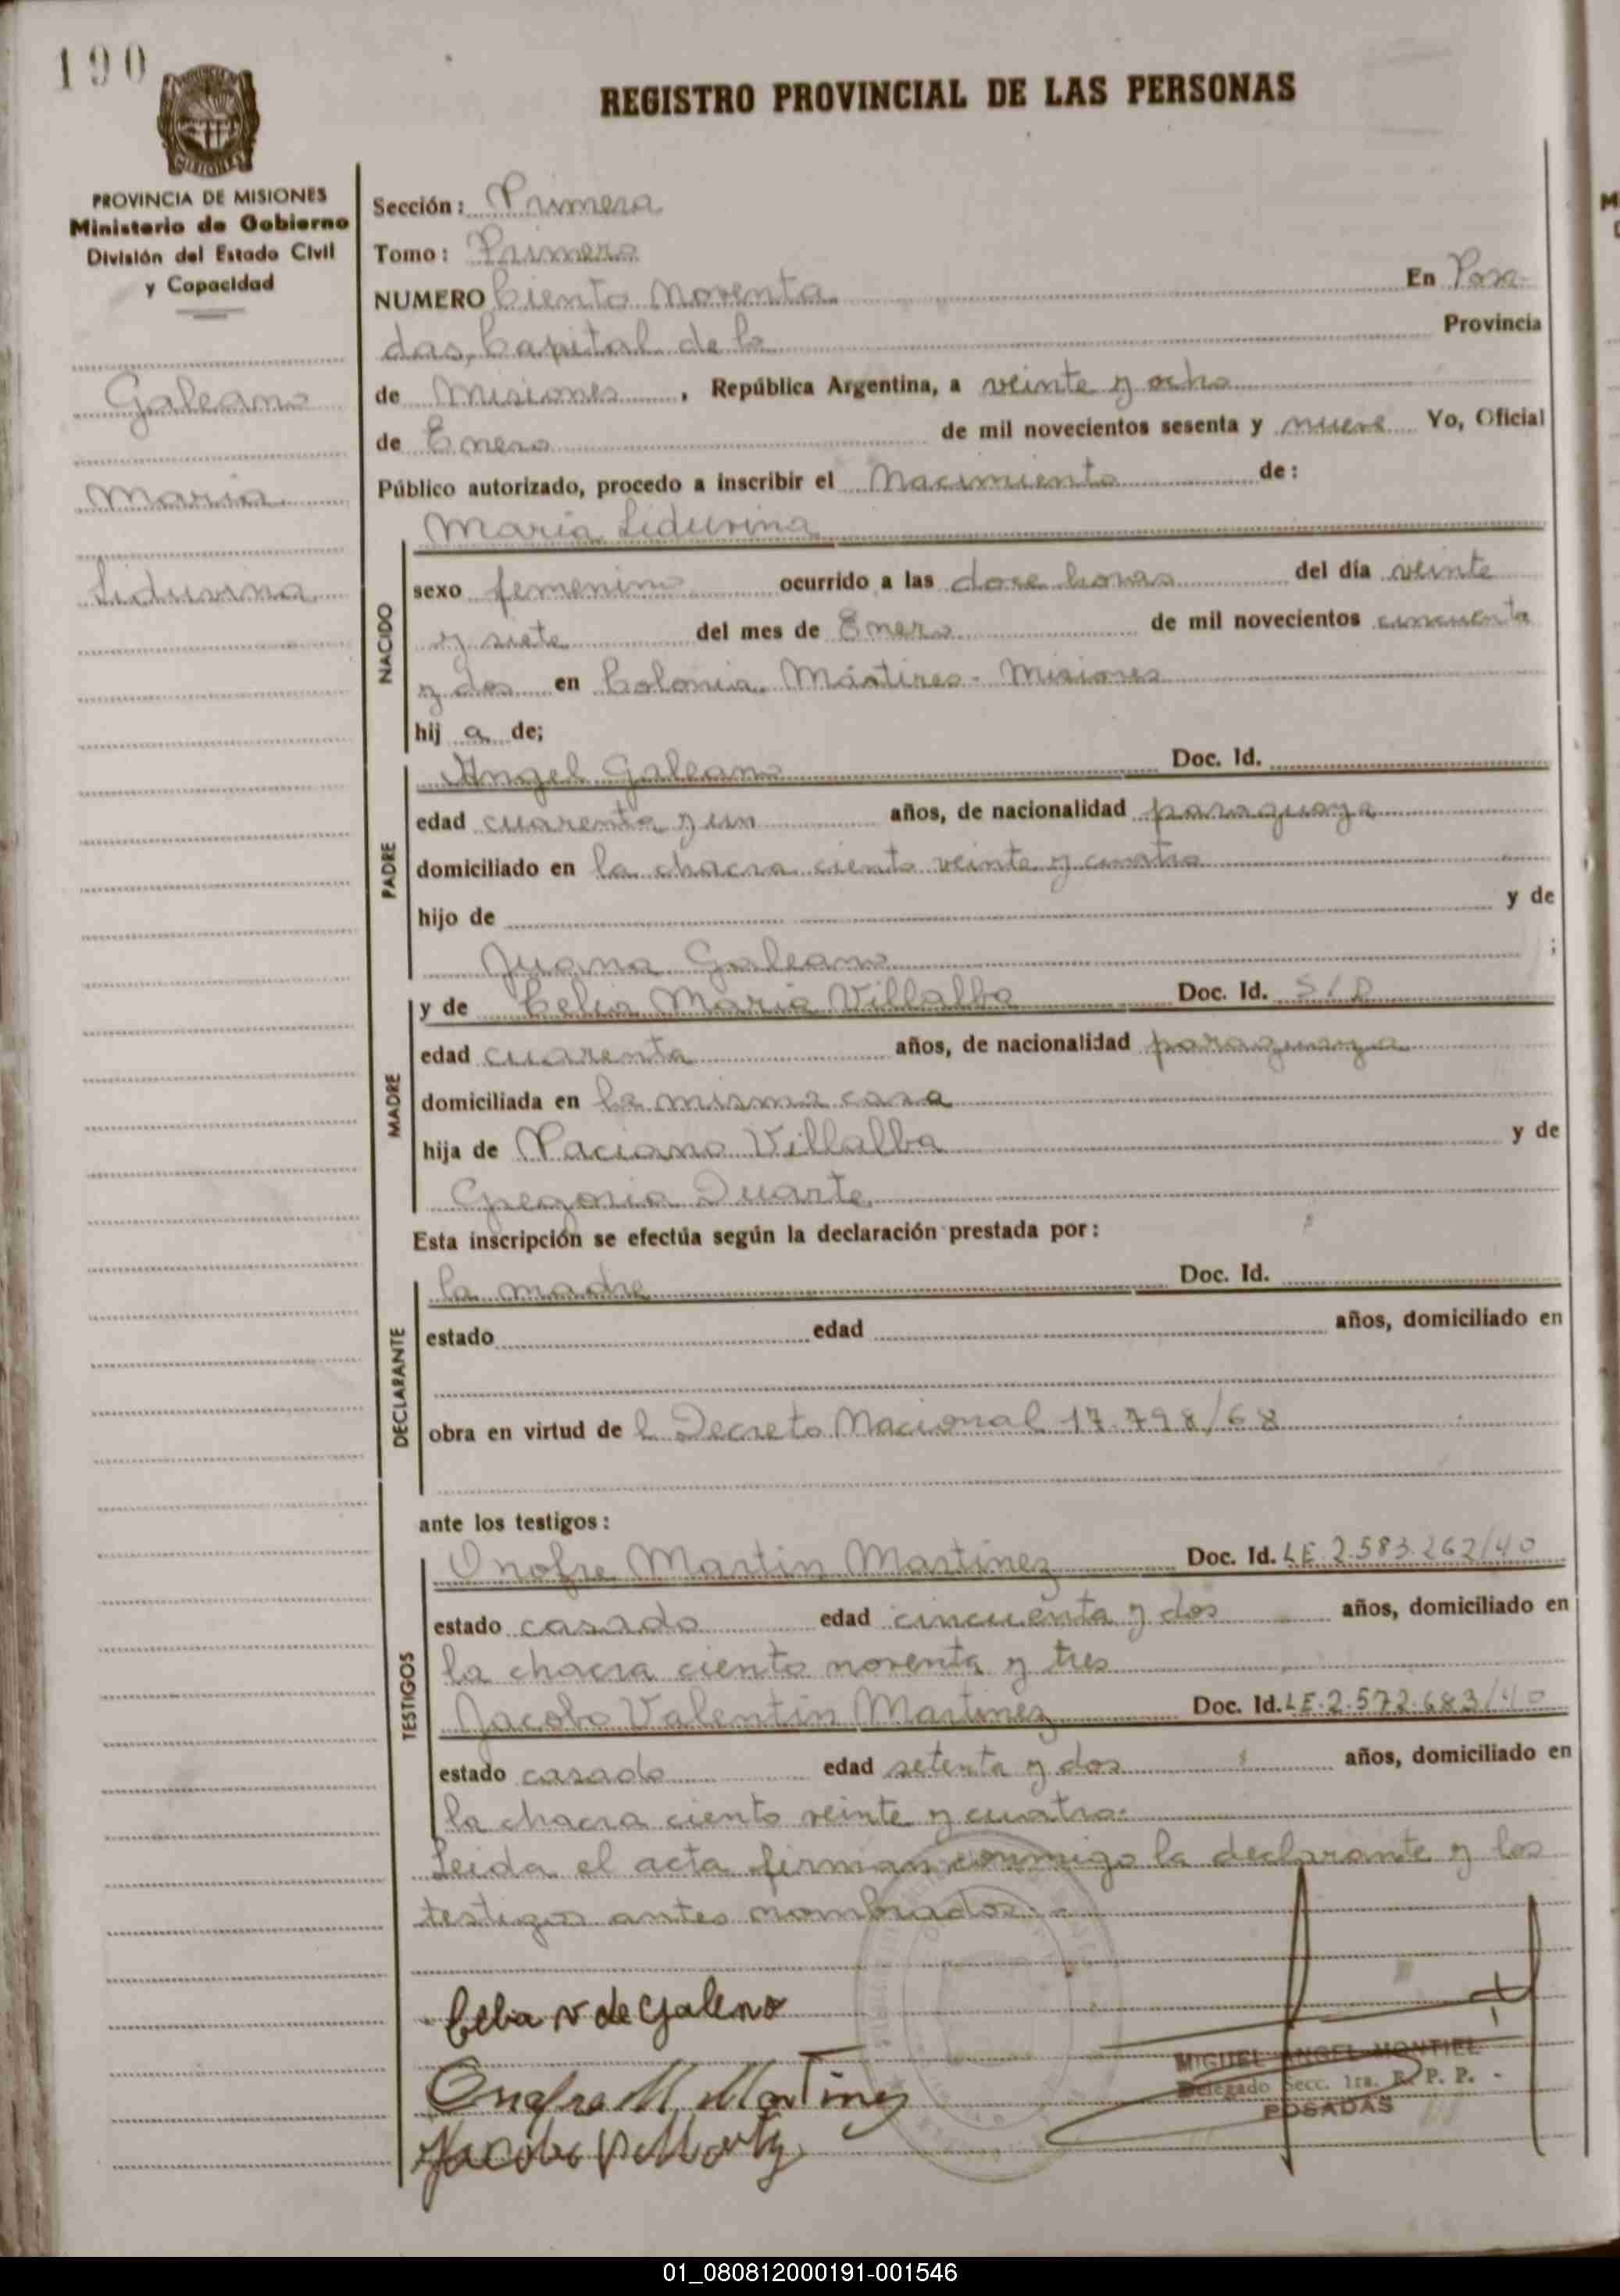 190
REGISTRO PROVINCIAL DE LAS PERSONAS
PROVINCIA DE MISIONES
Ministerio de Gobierno
División del Estado Civil
y Capacidad
Galeano
Maria
Lidurina
Sección: Primera
Tomo: Primero
NUMERO Ciento Noventa En Posa-
das, Capital de la Provincia
de Misiones, República Argentina, a veinte y ocho
de Enero de mil novecientos sesenta y nueve Yo, Oficial
Público autorizado, procedo a inscribir el Nacimiento de:
NACIDO
Maria Lidurina
sexo femenino ocurrido a las doce horas del día veinte
y siete del mes de Enero de mil novecientos cincuenta
y dos en Colonia Mártires - Misiones
hij a de;
PADRE
Angel Galeano Doc. Id.
edad cuarenta y un años, de nacionalidad paraguaya
domiciliado en la chacra ciento veinte y cuatro
hijo de y de
Juana Galeano ;
MADRE
y de Celia Maria Villalba Doc. Id. S/D
edad cuarenta años, de nacionalidad paraguaya
domiciliada en la misma casa
hija de Paciano Villalba y de
Gregoria Duarte
Esta inscripción se efectúa según la declaración prestada por:
DECLARANTE
la madre Doc. Id.
estado edad años, domiciliado en
obra en virtud de l Decreto Nacional 17.798/68
ante los testigos:
TESTIGOS
Onofre Martin Martinez Doc. Id. LE.2.583.262/40
estado casado edad cincuenta y dos años, domiciliado en
la chacra ciento noventa y tres
Jacobo Valentin Martinez Doc. Id. LE.2.572.683/40
estado casado edad setenta y dos años, domiciliado en
la chacra ciento veinte y cuatro.
Leida el acta firman conmigo la declarante y los
testigos antes nombrados.-
Celia v de Galeno
Onofre M Martinez
MIGUEL ANGEL MONTIEL
Delegado Secc. 1ra. R. P. P.
POSADAS
Jacobo
01_080812000191-001546